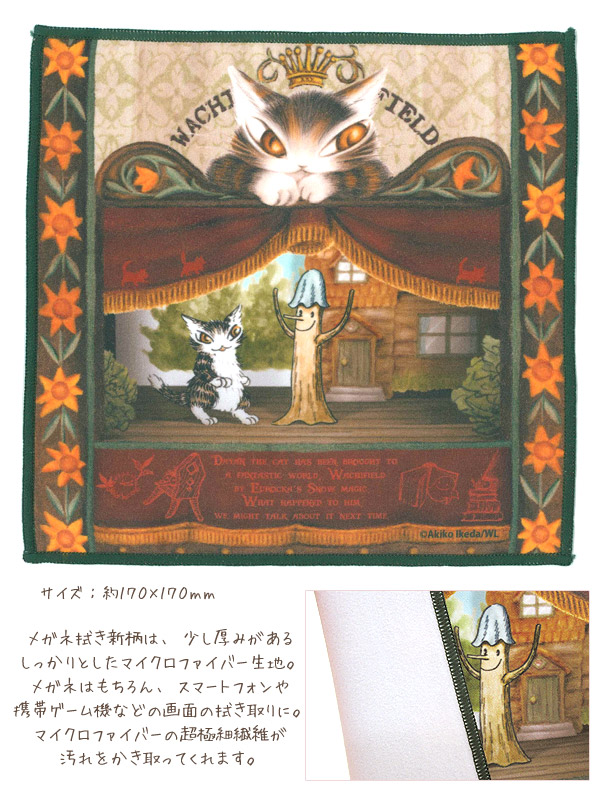 WACHI FIELD
DAYAN THE CAT HAS BEEN BROUGHT TO
A FANTASTIC WORLD, WACHIFIELD
BY EUREEKA'S SNOW MAGIC.
WHAT HAPPERED TO HER?
WE MIGHT TALK ABOUT IT NEXT TIME.
©Akiko Ikeda/WL
サイズ；約170×170mm
メガネ拭き新柄は、少し厚みがある
しっかりとしたマイクロファイバー生地。
メガネはもちろん、スマートフォンや
携帯ゲーム機などの画面の拭き取りに。
マイクロファイバーの超極細繊維が
汚れをかき取ってくれます。